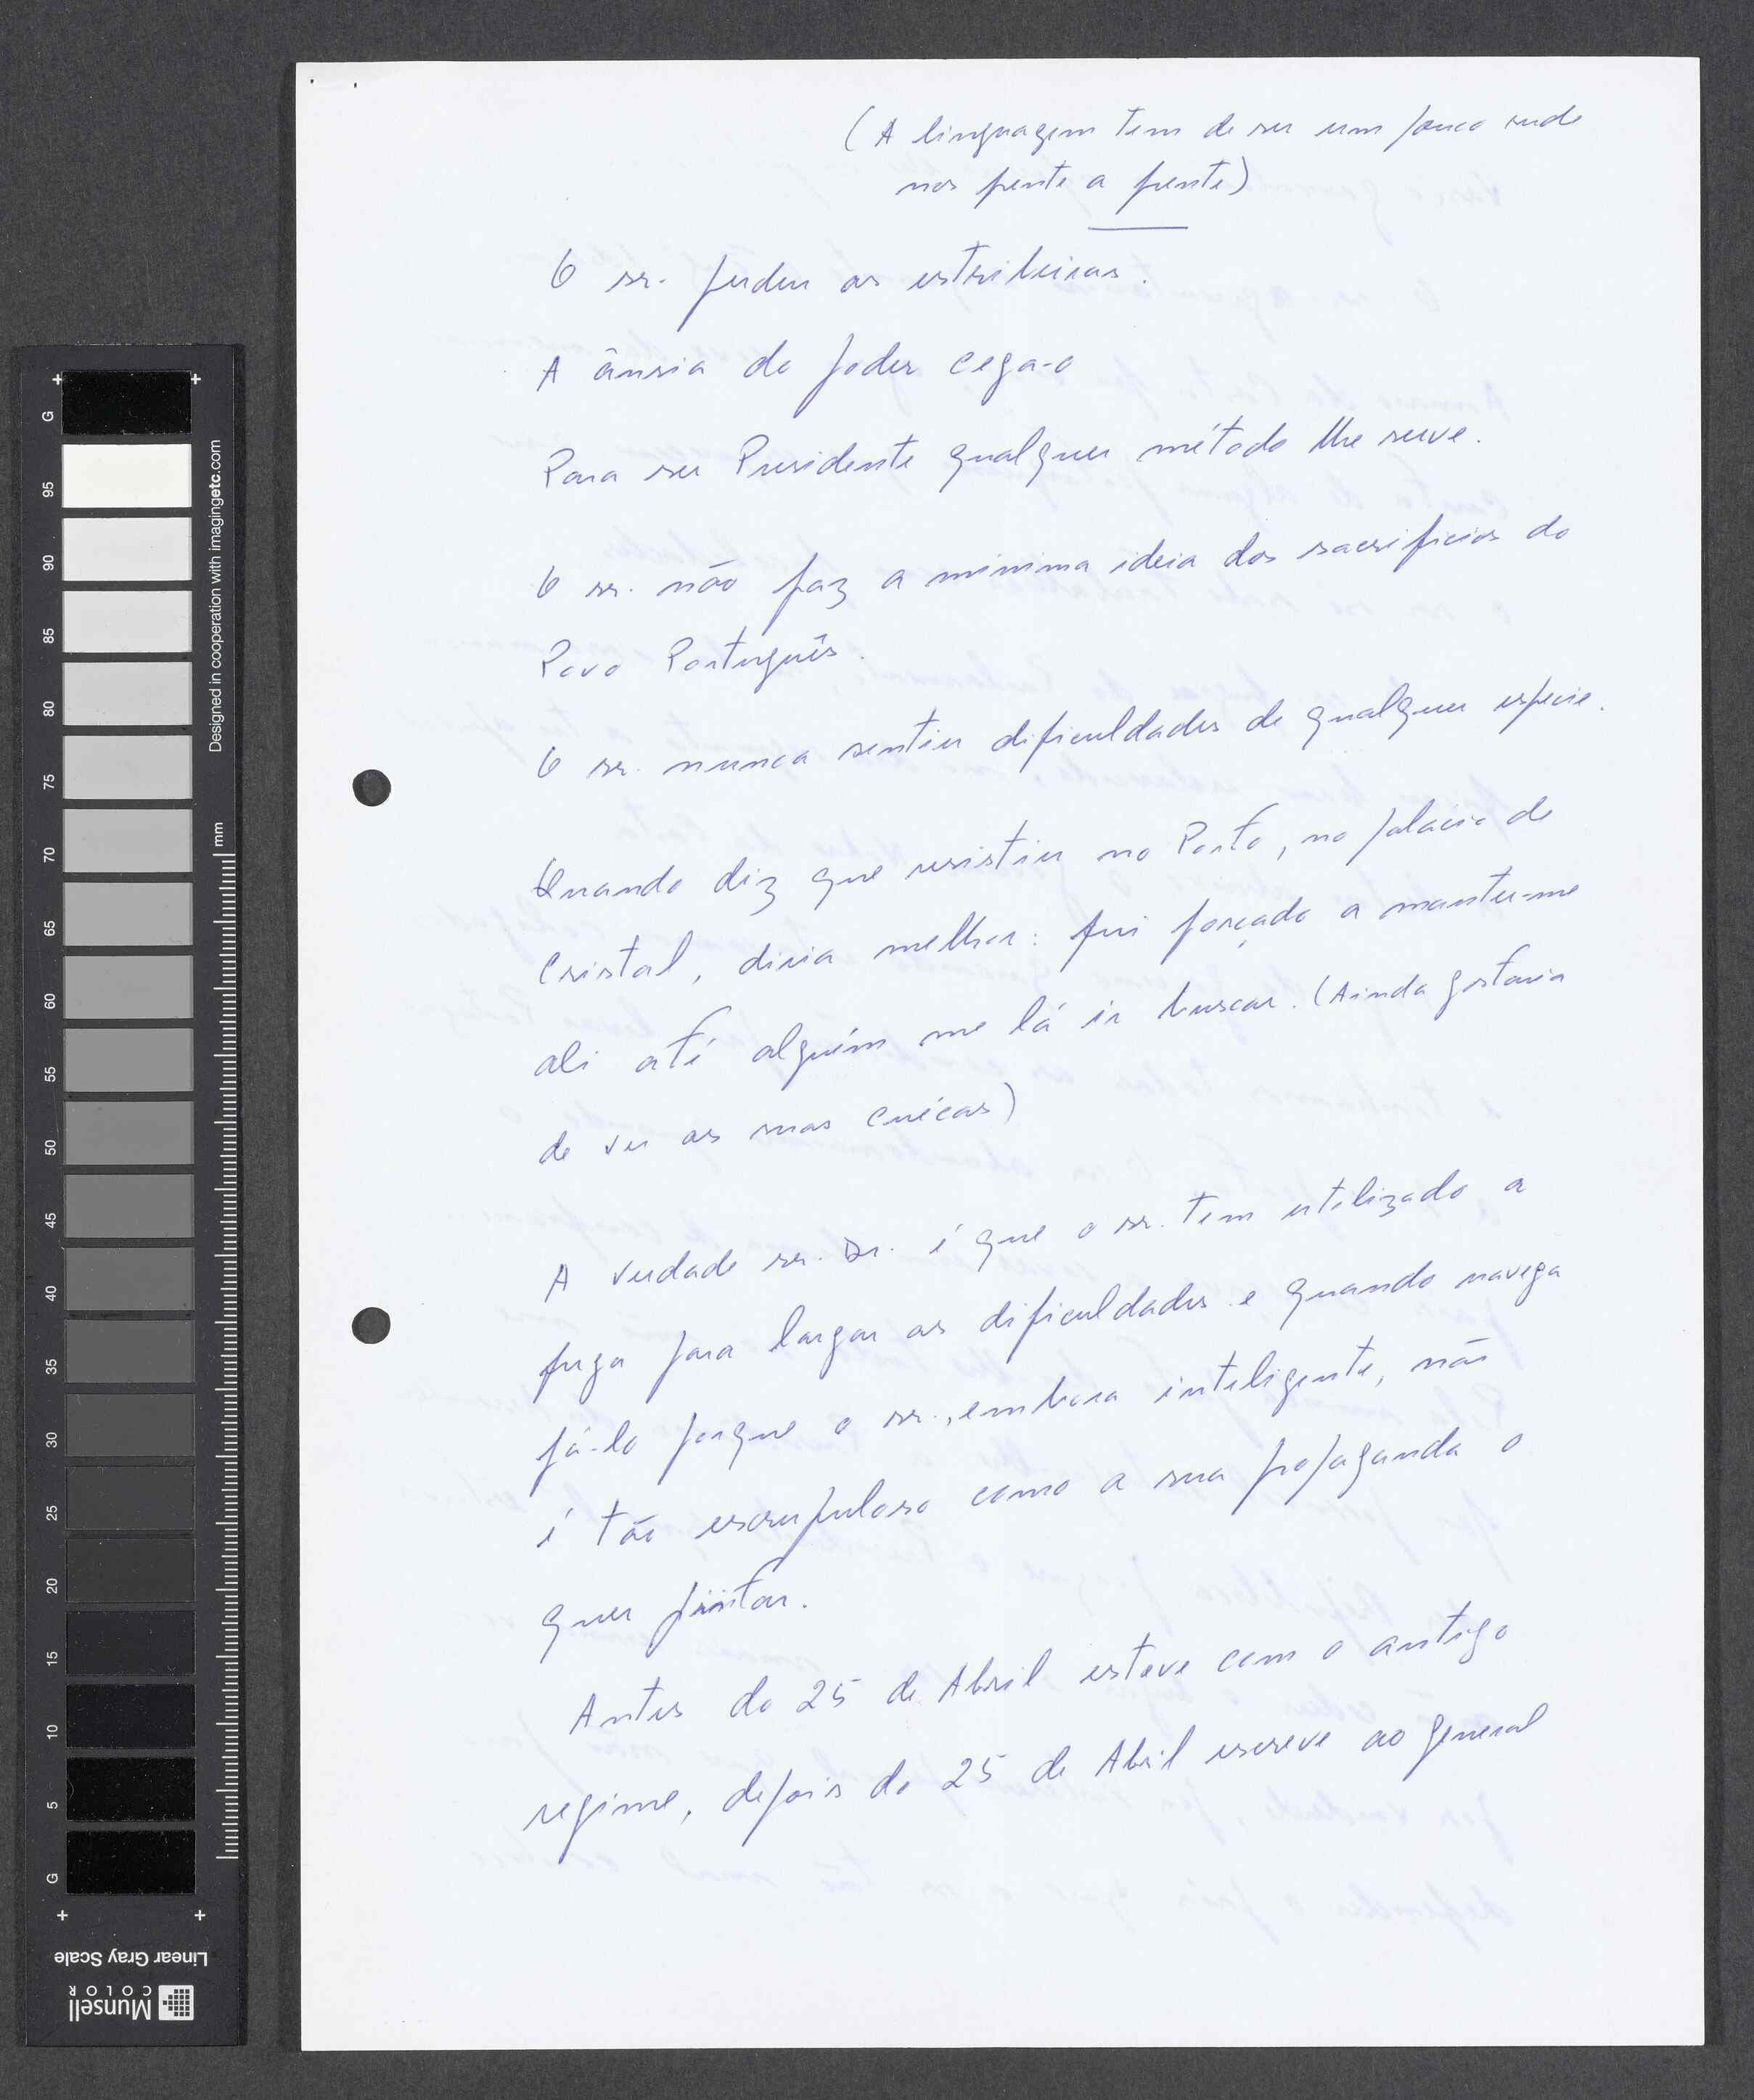 (A linguagem tem de ser um pouco rude
nos frente a frente)
O sr. perdeu as estribeiras.
A ânsia do poder cega-o
Para ser Presidente qualquer método lhe serve.
O sr. não faz a minima ideia dos sacrificios do
Povo Português.
O sr. nunca sentiu dificuldades de qualquer espécie.
Quando diz que resistiu no Porto, no palácio de
Cristal, diria melhor: fui forçado a manter-me
ali até alguém me lá ir buscar. (Ainda gostaria
de ver as suas cuécas)
A verdade sr. Dr. é que o sr. tem utilizado a
fuga para largar as dificuldades e quando navega
fá-lo porque o sr., embora inteligente, não
é tão escrupuloso como a sua propaganda o
quer pintar.
Antes do 25 de Abril esteve com o antigo
regime, depois do 25 de Abril escreve ao general
G
95
90
85
80
75
70
65
60
55
50
45
40
35
30
25
20
15
10
5
G
mm
Designed in cooperation with imagingetc.com
Linear Gray Scale
Munsell
COLOR